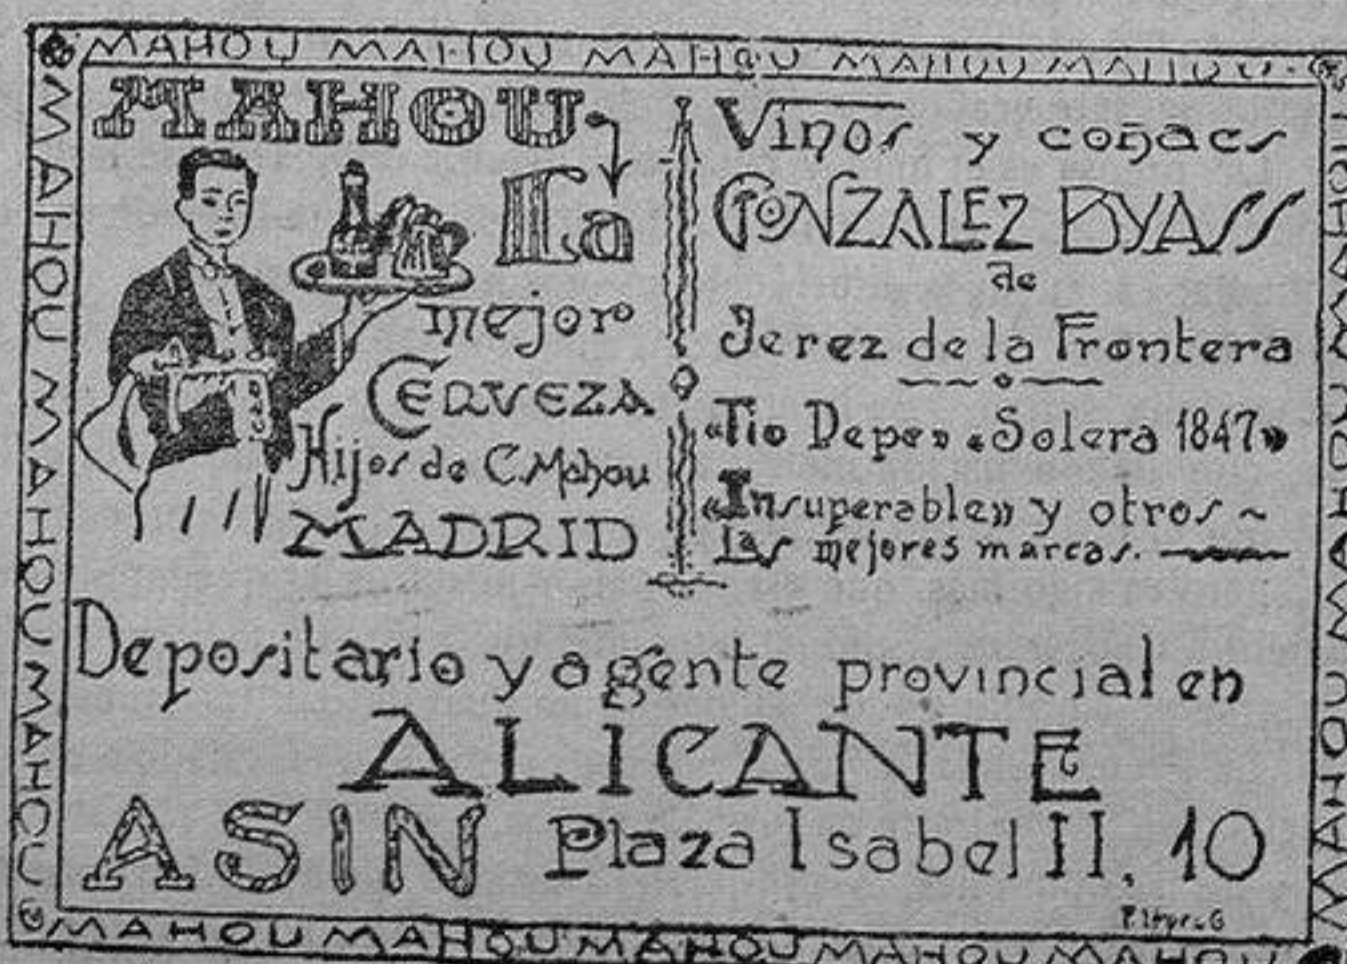 MAHOU MAHOU MAHOU MAHOU MAHOU
MAHOU
La
mejor
CERVEZA
Hijos de C. Mahou
MADRID
Vinos y coñacs
GONZALEZ BYASS
de
Jerez de la Frontera
«Tio Pepe» «Solera 1847»
«Insuperable» y otros ~
Las mejores marcas.
Depositario y agente provincial en
ALICANTE
ASIN Plaza Isabel II, 10
MAHOU MAHOU MAHOU MAHOU MAHOU
MAHOU MAHOU MAHOU MAHOU MAHOU